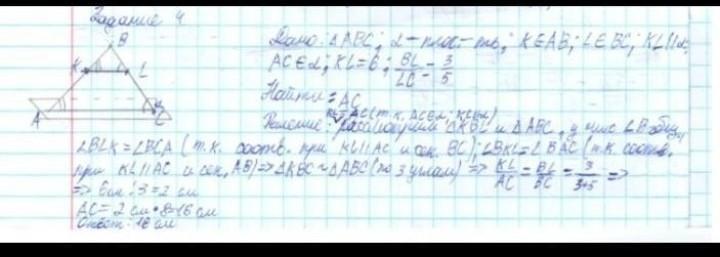 Задание 4
B
K L
A C
Дано: △ABC; α - плоск-ть; K∈AB; L∈BC; KL||α;
AC∈α; KL=6; BL/LC = 3/5
Найти: AC
KL||AC (т.к. AC∈α; KL||α)
Решение: рассмотрим △KBL и △ABC, у них ∠B общ.
∠BLK=∠BCA (т.к. соотв. при KL||AC и сек. BC); ∠BKL=∠BAC (т.к. соотв.
при KL||AC и сек. AB) => △KBC~△ABC (по 3 углам) => KL/AC = BL/BC = 3/3+5 =>
=> 6см:3=2 см
AC= 2 см•8=16 см
Ответ: 16 см